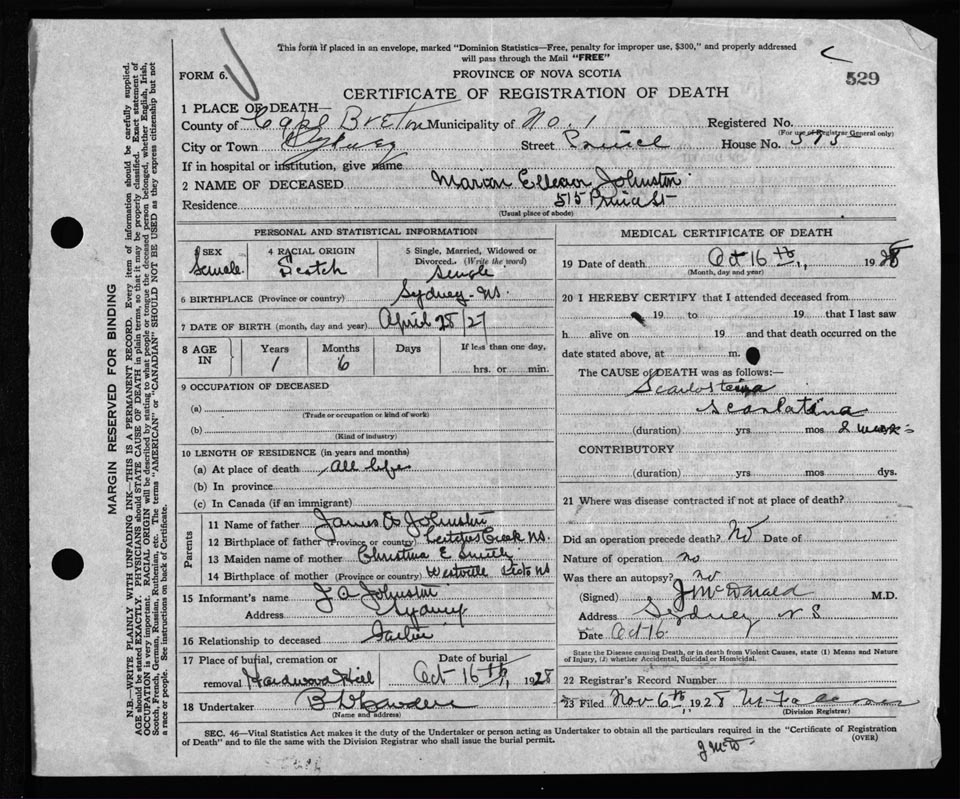 This form if placed in an envelope, marked "Dominion Statistics—Free, penalty for improper use, $300," and properly addressed
will pass through the Mail "FREE"
FORM 6.
PROVINCE OF NOVA SCOTIA
529
CERTIFICATE OF REGISTRATION OF DEATH
1 PLACE OF DEATH—
County of Cape Breton Municipality of No. 1 Registered No.
(For use of Registrar General only)
City or Town Sydney Street House No.
If in hospital or institution, give name
2 NAME OF DECEASED Marion Johnston
Residence 515 St
(Usual place of abode)
PERSONAL AND STATISTICAL INFORMATION
SEX 4 RACIAL ORIGIN 5 Single, Married, Widowed or
Divorced. (Write the word)
Female Scotch Single
6 BIRTHPLACE (Province or country) Sydney - NS.
7 DATE OF BIRTH (month, day and year) April 28/27
8 AGE IN Years Months Days If less than one day,
1 6 hrs. or min.
9 OCCUPATION OF DECEASED
(a)
(Trade or occupation or kind of work)
(b)
(Kind of industry)
10 LENGTH OF RESIDENCE (in years and months)
(a) At place of death All life
(b) In province
(c) In Canada (if an immigrant)
Parents
11 Name of father James A Johnston
12 Birthplace of father (Province or country) Creek NS.
13 Maiden name of mother Christina E Smith
14 Birthplace of mother (Province or country) Westville NS
15 Informant's name J A Johnston
Address Sydney
16 Relationship to deceased Father
17 Place of burial, cremation or Date of burial
removal Hardwood Hill Oct 16th, 1928
18 Undertaker
(Name and address)
MEDICAL CERTIFICATE OF DEATH
19 Date of death Oct 16th, 1928
(Month, day and year)
20 I HEREBY CERTIFY that I attended deceased from
19 to 19 that I last saw
h alive on 19 and that death occurred on the
date stated above, at m.
The CAUSE of DEATH was as follows:—
Scarlatina
(duration) yrs. mos 2
CONTRIBUTORY
(duration) yrs. mos. dys.
21 Where was disease contracted if not at place of death?
Did an operation precede death? No Date of
Nature of operation no
Was there an autopsy? no
(Signed) J McDonald M.D.
Address Sydney N S
Date Oct 16
State the Disease causing Death, or in death from Violent Causes, state (1) Means and Nature
of Injury, (2) whether Accidental, Suicidal or Homicidal.
22 Registrar's Record Number
23 Filed Nov 6th, 1928
(Division Registrar)
SEC. 46—Vital Statistics Act makes it the duty of the Undertaker or person acting as Undertaker to obtain all the particulars required in the "Certificate of Registration
of Death" and to file the same with the Division Registrar who shall issue the burial permit.
(OVER)
J McD.
MARGIN RESERVED FOR BINDING
N.B.—WRITE PLAINLY WITH UNFADING INK—THIS IS A PERMANENT RECORD. Every item of information should be carefully supplied.
AGE should be stated EXACTLY. PHYSICIANS should STATE CAUSE OF DEATH in plain terms, so that it may be properly classified. Exact statement of
OCCUPATION is very important. RACIAL ORIGIN will be described by stating to what people or tongue the deceased person belonged, whether English, Irish,
Scotch, French, German, Russian, Ruthenian, etc. The terms "AMERICAN" or "CANADIAN" SHOULD NOT BE USED as they express citizenship but not
a race or people. See instructions on back of Certificate.